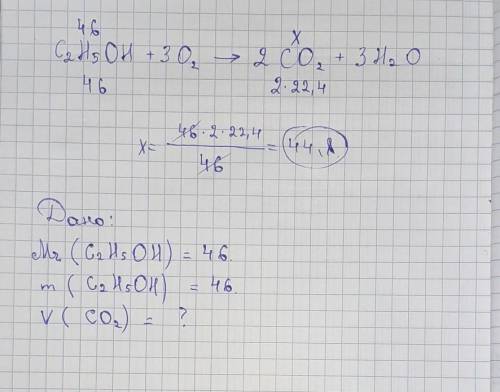 46 x
C₂H₅OH + 3O₂ → 2 CO₂ + 3H₂O
46 2·22,4
x = 46·2·22,4 / 46 = 44,8
Дано:
Mr (C₂H₅OH) = 46.
m (C₂H₅OH) = 46.
V (CO₂) = ?